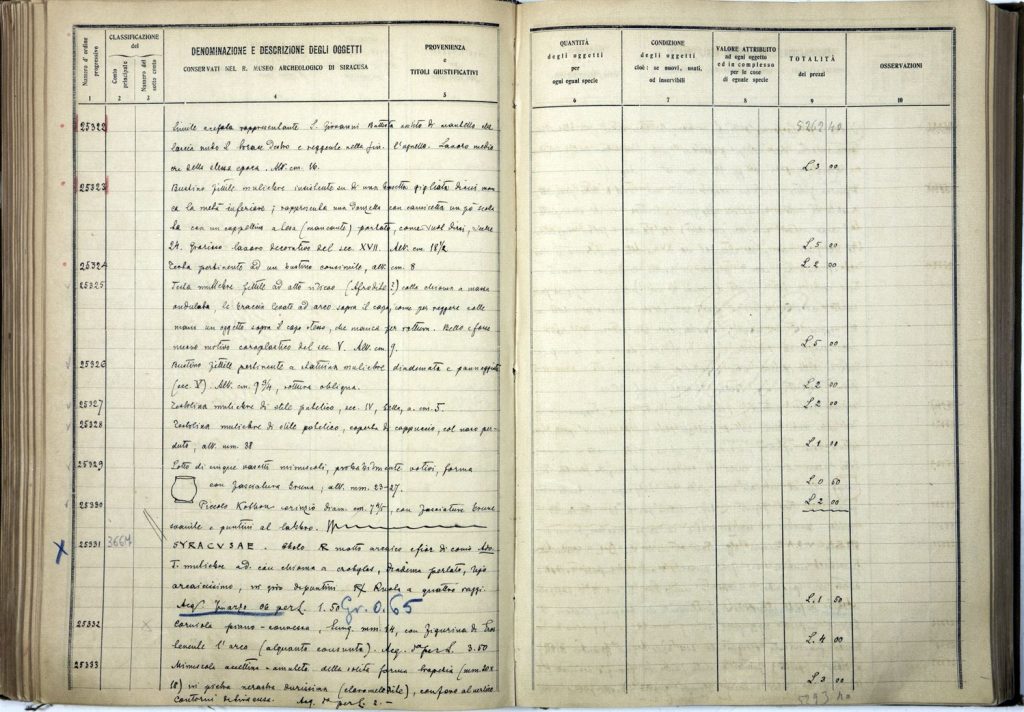 CLASSIFICAZIONE
del
Numero d'ordine progressivo
Conto principale
Numero del sotto conto
DENOMINAZIONE E DESCRIZIONE DEGLI OGGETTI
CONSERVATI NEL R. MUSEO ARCHEOLOGICO DI SIRACUSA
PROVENIENZA
e
TITOLI GIUSTIFICATIVI
QUANTITÀ
degli oggetti
per
ogni ogni specie
CONDIZIONE
degli oggetti
cioè: se nuovi, usati,
od inservibili
VALORE ATTRIBUITO
ad ogni oggetto
ed in complesso
per le cose
di eguale specie
TOTALITÀ
dei prezzi
OSSERVAZIONI
1 2 3 4 5 6 7 8 9 10
5262 40
25322 Simile acefala rappresentante S. Giovanni Battista vestito di mantello che
lascia nudo il braccio destro e reggente nella l'agnello. Lavoro medio
cre della stessa epoca. Alt. cm. 16. L. 3 00
25323 Bustino fittile muliebre insistente su di una gigliata di cui man
ca la metà inferiore; rappresenta una donzella con camicetta un pò scolla
ta con un cappellino a (mancante) portato, come suol dirsi,
24. Grazioso lavoro decorativo del sec. XVII. Alt. cm. 18½ L. 5 00
25324 Testa pertinente ad un bustino consimile, alt. cm. 8 L. 2 00
25325 Testa muliebre fittile ad alto rilievo (Afrodite?) colla chioma a masse
ondulata, le braccia ad arco sopra il capo, come per reggere colle
mani un oggetto sopra il capo stesso, che manca per rottura. Bello e
nuovo motivo coroplastico del sec. V. Alt. cm. 9. L. 5 00
25326 Bustino fittile pertinente a statuina muliebre diademata e panneggiata
(sec. V). Alt. cm. 9¾, rottura obliqua. L. 2 00
25327 Testolina muliebre di stile patetico, sec. IV, bella, a. cm. 5. L. 2 00
25328 Testolina muliebre di stile patetico, coperta di cappuccio, col naso per-
duto; alt. mm. 38 L. 1 00
25329 Lotto di cinque vasetti minuscoli, probabilmente votivi, forma
con fasciatura bruna; alt. mm. 23-27. L. 0 50
25330 Piccolo Kothon corinzio diam. cm. 7, con fasciature brune
svanite e puntini al labbro. L. 2 00
25331 3664 SYRACVSAE. Obolo R motto arcaico
T. muliebre ad. con chioma a crobylos, diadema perlato, tipo
arcaicissimo, in giro di puntini R Ruota a quattro raggi.
Acq. marzo 06 per L. 1.50 Gr. 0.65 L. 1 50
25332 Corniola piano-convessa, lung. mm. 14, con figurina di
l'arco (alquanto consunta). Acq. per L. 3.50 L. 4 00
25333 Minuscola accettina-amuleto della solita forma trapezia (mm. 20 x
18) in pietra nerastra durissima (cloromelanite), con foro al vertice
Contorni di Siracusa. Acq. per L. 2.- L. 3 00
5293 40